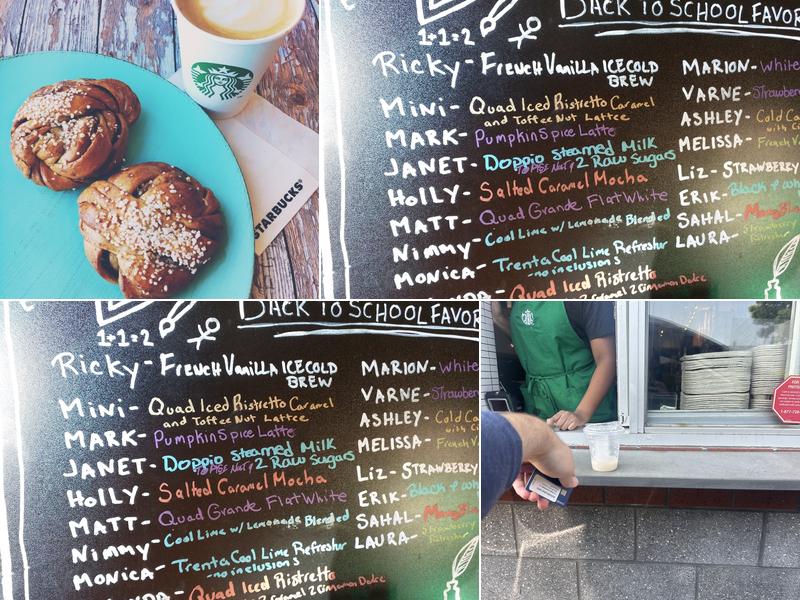 STARBUCKS®
BACK TO SCHOOL FAVOR
1+1=2
Ricky- FRENCH VANILLA ICE COLD
BREW
Mini- Quad Iced Ristretto Caramel
and Toffee Nut Lattee
MARK- Pumpkin Spice Latte
JANET- Doppio steamed Milk
2 Raw Sugars
HOLLY- Salted Caramel Mocha
MATT- Quad Grande Flat White
Nimmy- Cool Lime w/ Lemonade Blended
MONICA- Trenta Cool Lime Refresher
-no inclusions
Quad Iced Ristretto
2 Caramel 2 Cinnamon Dolce
MARION- White
VARNE- Strawber
ASHLEY- Cold Ca
with C
MELISSA- French V
Liz- STRAWBERRY
ERIK- Black & wh
SAHAL-
LAURA- Strawberry
Refresher
BACK TO SCHOOL FAVOR
1+1=2
Ricky- FRENCH VANILLA ICE COLD
BREW
Mini- Quad Iced Ristretto Caramel
and Toffee Nut Lattee
MARK- Pumpkin Spice Latte
JANET- Doppio steamed Milk
2 Raw Sugars
HOLLY- Salted Caramel Mocha
MATT- Quad Grande Flat White
Nimmy- Cool Lime w/ Lemonade Blended
MONICA- Trenta Cool Lime Refresher
-no inclusions
Quad Iced Ristretto
2 Caramel 2 Cinnamon Dolce
MARION- White
VARNE- Strawber
ASHLEY- Cold Ca
with C
MELISSA- French V
Liz- STRAWBERRY
ERIK- Black & wh
SAHAL-
LAURA- Strawberry
Refresher